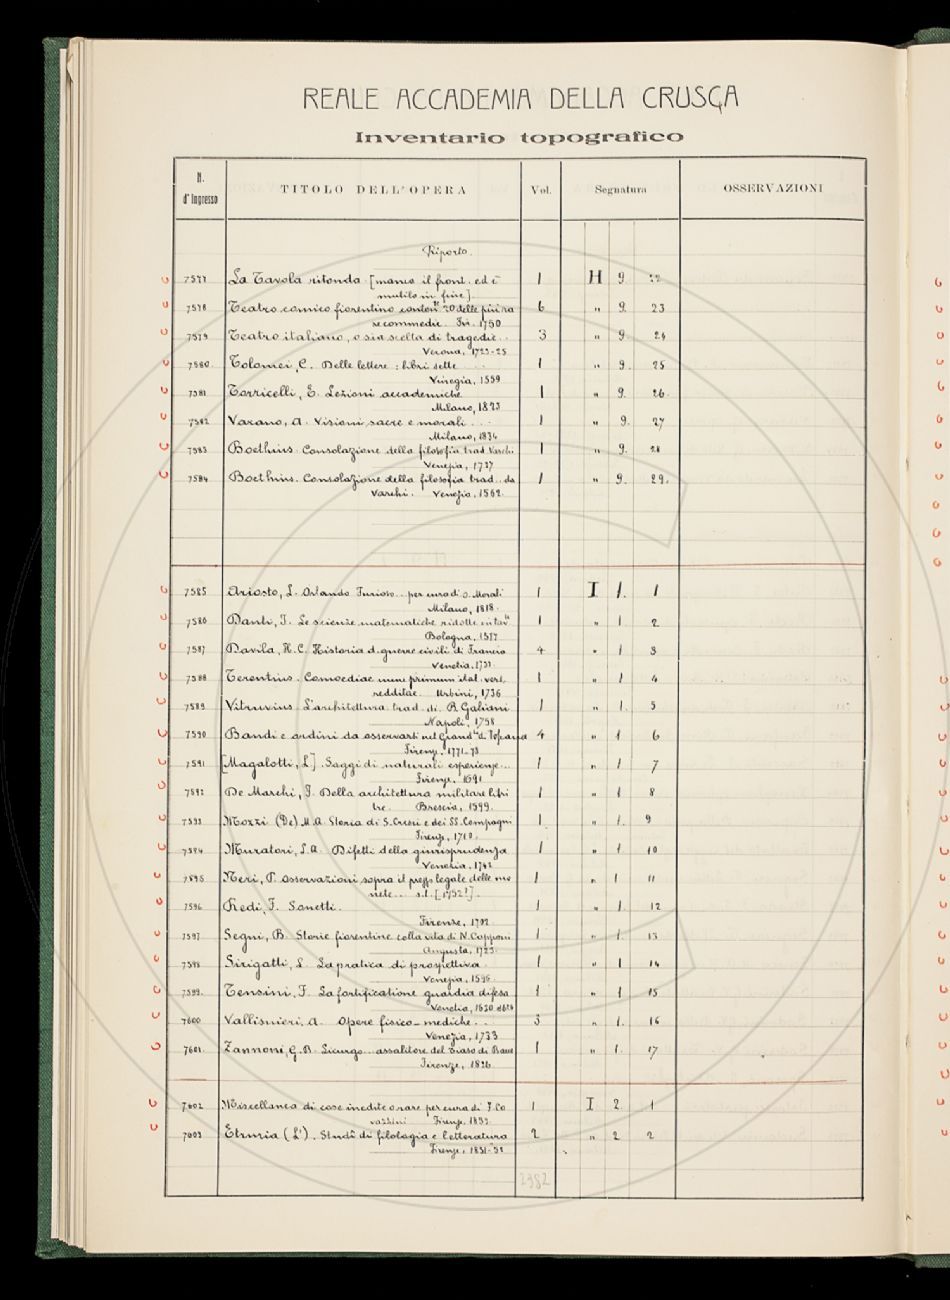 REALE ACCADEMIA DELLA CRUSCA
Inventario topografico
N. d'Ingresso TITOLO DELL'OPERA Vol. Segnatura OSSERVAZIONI
Riporto
7577 La Tavola ritonda [manca il front. ed è 1 H 9. 22
mutilo in fine]
7578 Teatro comico fiorentino conten. 20 delle più ra 6 " 9. 23
re commedie. Fir. 1750
7579 Teatro italiano, o sia scelta di tragedie.. 3 " 9. 24
Verona, 1723-25
7580 Tolomei, C. Delle lettere: libri sette 1 " 9. 25
Vinegia, 1559
7581 Torricelli, E. Lezioni accademiche 1 " 9. 26.
Milano, 1823
7582 Varano, A. Visioni sacre e morali... 1 " 9. 27
Milano, 1834
7583 Boethius. Consolazione della filosofia trad. Varchi 1 " 9. 28
Venezia, 1737
7584 Boethius. Consolazione della filosofia trad. da 1 " 9. 29.
Varchi. Venezia, 1562.
7585 Ariosto, L. Orlando Furioso.. per cura di O. Morali 1 I 1. 1
Milano, 1818.
7586 Danti, I. Le scienze matematiche ridotte in tav. 1 " 1. 2
Bologna, 1577
7587 Davila, H. C. Historia d. guerre civili di Francia 4 " 1 3
Venetia, 1733
7588 Terentius. Comoediae nunc primum ital. vers. 1 " 1 4
redditae. Urbini, 1736
7589. Vitruvius. L'architettura trad. di B. Galiani 1 " 1. 5
Napoli, 1758
7590 Bandi e ordini da osservarsi nel Grand. di Toscana 4 " 1 6
Firenze, 1771-73
7591 [Magalotti, L.]. Saggi di naturali esperienze... 1 " 1 7
Firenze, 1691
7592 De Marchi, F. Della architettura militare libri 1 " 1 8
tre. Brescia, 1599.
7593 Mozzi (De) M. A. Storia di S. Cresci e dei SS. Compagni 1 " 1. 9
Firenze, 1710.
7594 Muratori, L. A. Difetti della giurisprudenza 1 " 1 10
Venezia, 1742
7595 Neri, P. Osservazioni sopra il prezzo legale delle mo 1 " 1 11
nete.. s.l. [1752?].
7596 Redi, F. Sonetti. 1 " 1. 12
Firenze, 1702
7597 Segni, B. Storie fiorentine colla vita di N. Capponi 1 " 1. 13
Augusta, 1723.
7598 Sirigatti, L. La pratica di prospettiva 1 " 1 14
Venezia, 1596
7599. Tensini, F. La fortificatione guardia difesa 1 " 1 15
Venetia, 1630
7600 Vallisnieri, A. Opere fisico-mediche.. 3 " 1. 16
Venezia, 1733
7601. Zannoni, G. B. Licurgo.. assalitore del Tiaso di Bacco 1 " 1. 17
Firenze, 1826
7602 Miscellanea di cose inedite o rare per cura di F. Co 1 I 2. 1
razzini Firenze, 1853.
7603 Etruria (L'). Studi di filologia e letteratura 2 " 2 2
Firenze, 1851-52
2382